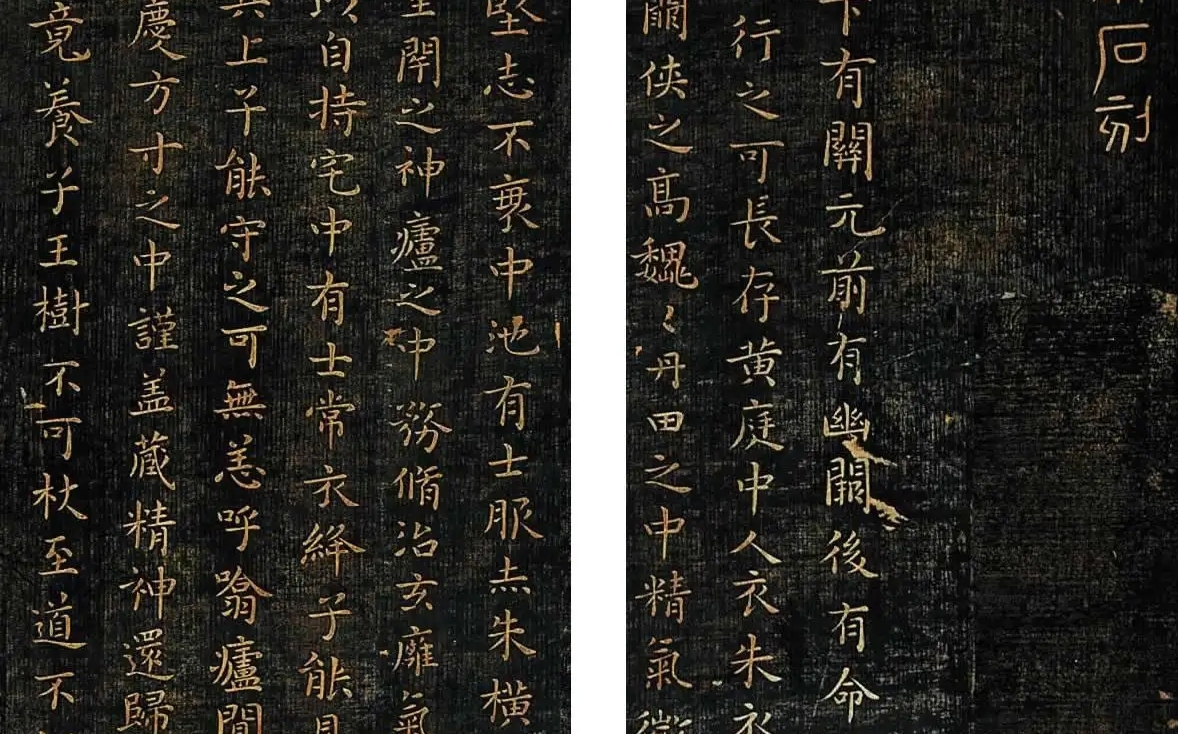 石刻
下有關元前有幽闕後有命
行之可長存黃庭中人衣朱衣
闔俠之高魏〻丹田之中精氣微
堅志不衰中池有士服赤朱橫
閑之神廬之中務脩治玄廱氣
以自持宅中有士常衣絳子能見
其上子能守之可無恙呼噏廬間
慶方寸之中謹盖藏精神還歸
竟養子王樹不可杖至道不